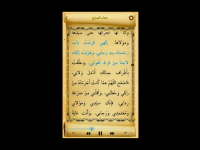 دعاء الصباح
واها لها لجرأتها على سيدها
ومولاها إلهي قرعت باب
رحمتك بيد رجائي، وهربت إليك
لاجئا من فرط أهوائي، وعلقت
بأطراف حبالك أنامل ولائي،
فاصفح اللهم عما كنت أجرمته من
زللي وخطائي، وأقلني من صرعة
ردائي، فإنك سيدي ومولاي
ومعتمدي ورجائي، وأنت غاية